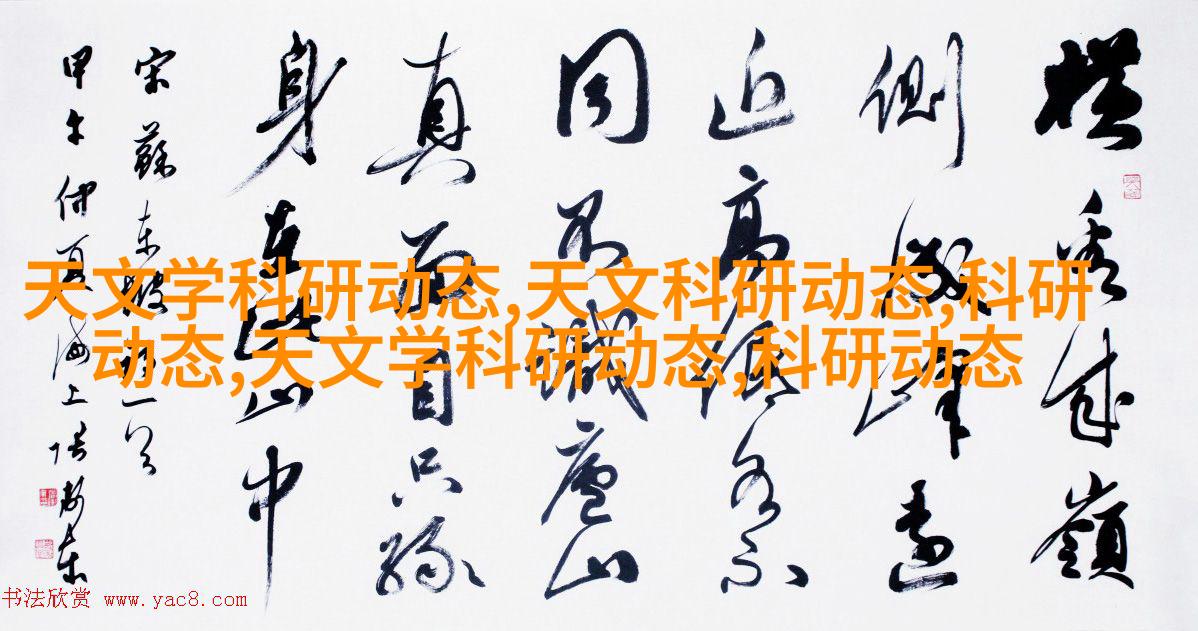 横看成嶺
側成峰遠
近高低各不
同不識廬山
真面目只緣
身在此山中
宋蘇東坡詩一首
甲午仲夏海上
天文学科研动态,天文科研动态,科研
动态,天文学科研动态,科研动态
书法欣赏 www.yac8.com